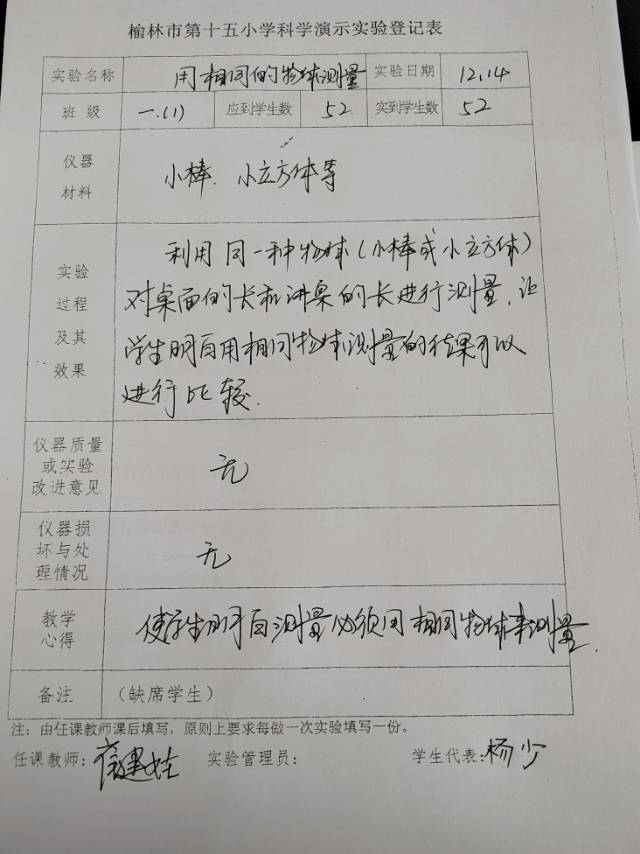 榆林市第十五小学科学演示实验登记表
实验名称 用相同的物体测量 实验日期 12.14
班 级 一.(1) 应到学生数 52 实到学生数 52
仪器
材料
小棒、小立方体等
实验
过程
及其
效果
利用同一种物体(小棒或小立方体)
对桌面的长和讲桌的长进行测量,让
学生明白用相同物体测量的结果可以
进行比较.
仪器质量
或实验
改进意见
无
仪器损
坏与处
理情况
无
教学
心得
使学生明白测量必须用相同物体来测量.
备注 (缺席学生)
注:由任课教师课后填写,原则上要求每做一次实验填写一份。
任课教师: 实验管理员: 学生代表:杨少